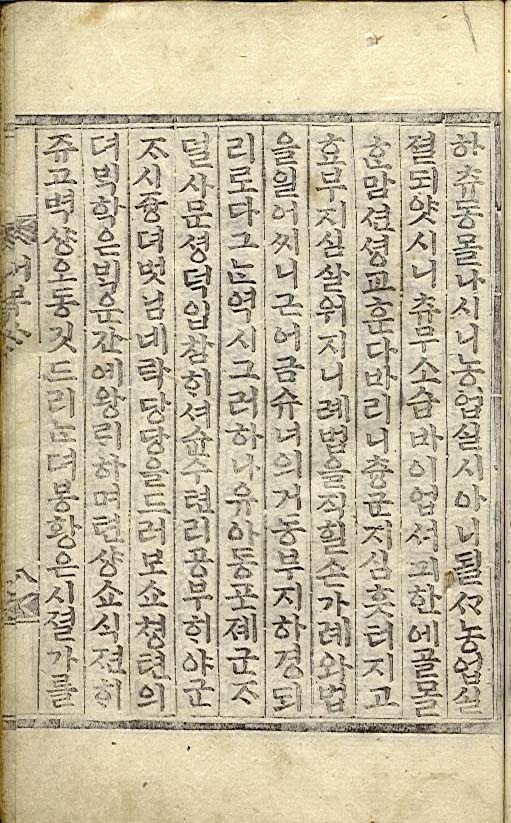 하츄동몰나시니농업실시아니될ᄉᆞ농업실
졀되얏시니츄무소슈바이업셔긔한에골몰
효말션셩교훈다바리니츙군지심흣터지고
효무지심살워지니례법을직횔손가례와법
을일어씨니근어금슈너의거농부지하경되
리로다그ᄂᆞᆫ역시그러하나유아동포졔군ᄌᆞ
덜사문셩덕입참히셔슈쥬텬리공부하야군
ᄌᆞ시즁뎌벗님네탁당당을드러보쇼쳥텬의
뎌빅학은빅운간에왕리하며텬샹쇼식젼히
쥬고벽샹오동깃드리ᄂᆞᆫ뎌봉황은시졀가를
八